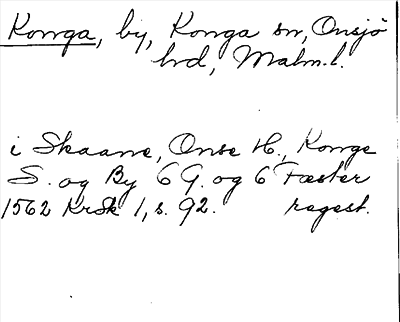 Konga, by, Konga sn, Onsjö
hrd, Malm. l.
i Skaane, Onse H., Konge
S. og By 6 G. og 6 Fæster
1562 KrSk 1, s. 92. regest.